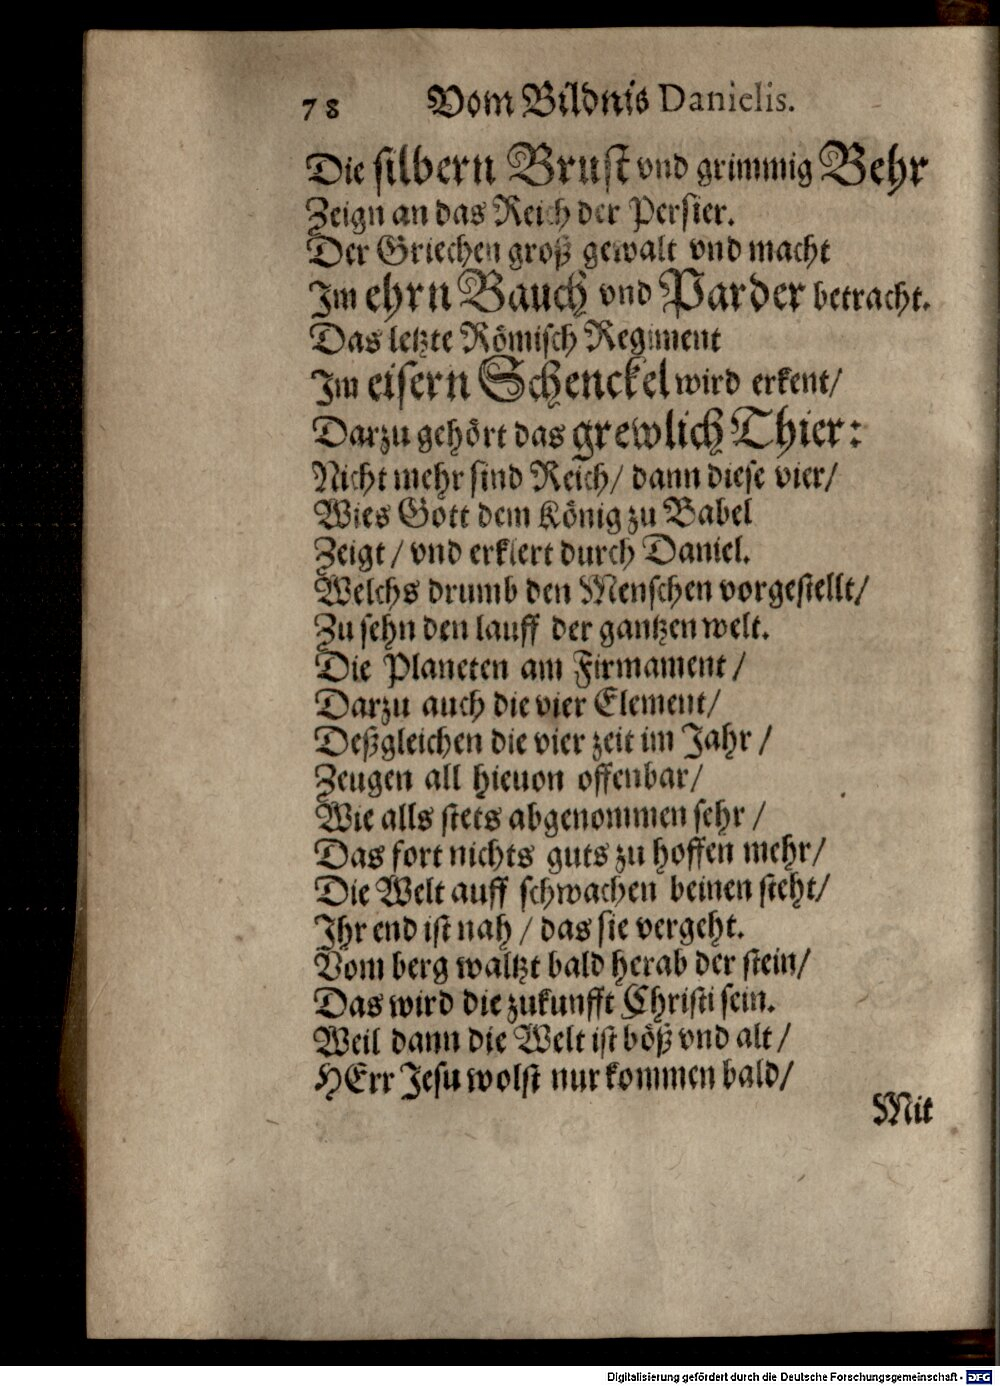 78 Vom Bildnis Danielis.
Die silbern Brust vnd grimmig Behr
Zeign an das Reich der Persier.
Der Griechen groß gewalt vnd macht
Im ehrn Bauch vnd Parder betracht.
Das letzte Römisch Regiment
Im eisern Schenckel wird erkent/
Darzu gehört das grewlich Thier:
Nicht mehr sind Reich/ dann diese vier/
Wies Gott dem König zu Babel
Zeigt/ vnd erklert durch Daniel.
Welchs drumb den Menschen vorgestellt/
Zu sehn den lauff der gantzen welt.
Die Planeten am Firmament/
Darzu auch die vier Element/
Deßgleichen die vier zeit im Jahr/
Zeugen all hieuon offenbar/
Wie alls stets abgenommen sehr/
Das fort nichts guts zu hoffen mehr/
Die Welt auff schwachen beinen steht/
Ihr end ist nah/ das sie vergeht.
Vom berg waltzt bald herab der stein/
Das wird die zukunfft Christi sein.
Weil dann die Welt ist böß vnd alt/
HErr Jesu wolst nur kommen bald/
Mit
Digitalisierung gefördert durch die Deutsche Forschungsgemeinschaft - DFG